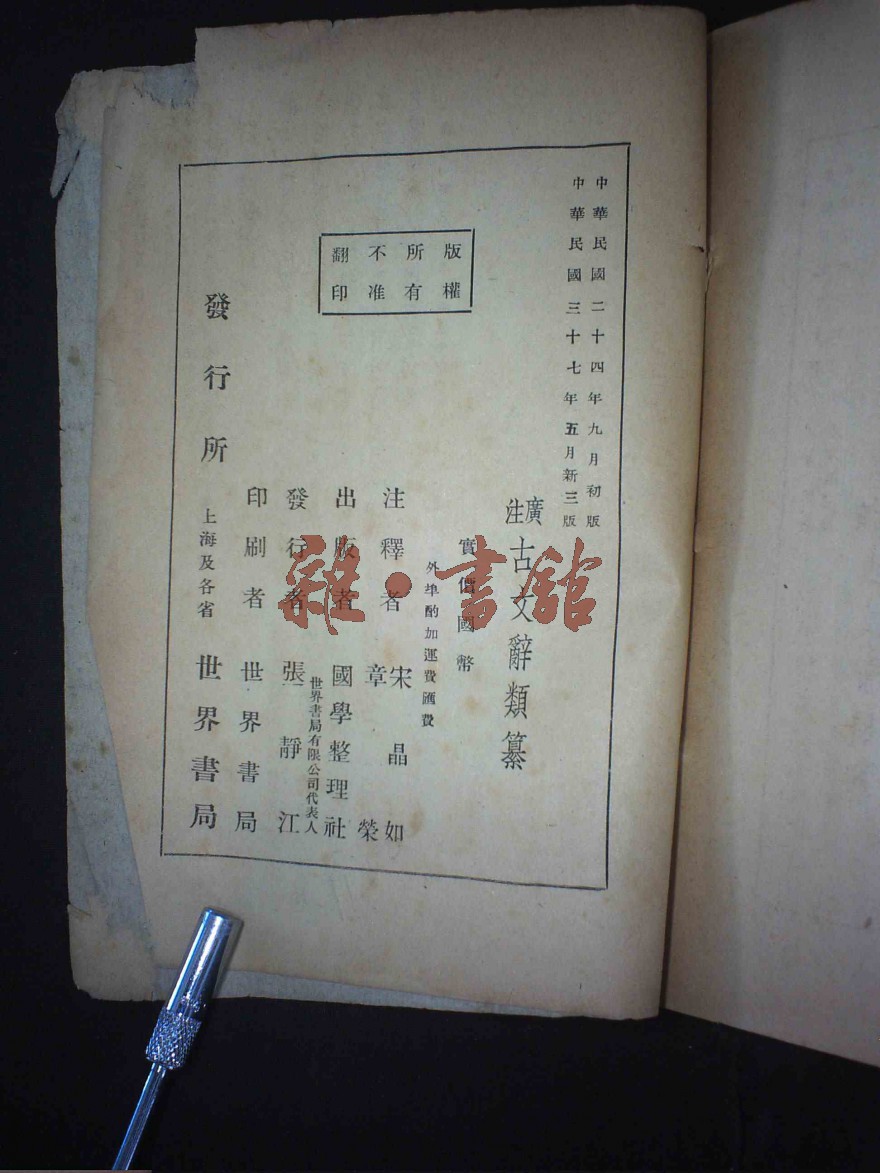 中華民國二十四年九月初版
中華民國三十七年五月新三版
廣注古文辭類纂
實價國幣
外埠酌加運費匯費
版權
所有
不准
翻印
注釋者 宋晶如 章榮
出版者 國學整理社
世界書局有限公司代表人
發行者 張靜江
印刷者 世界書局
發行所 上海及各省 世界書局
雜·書館